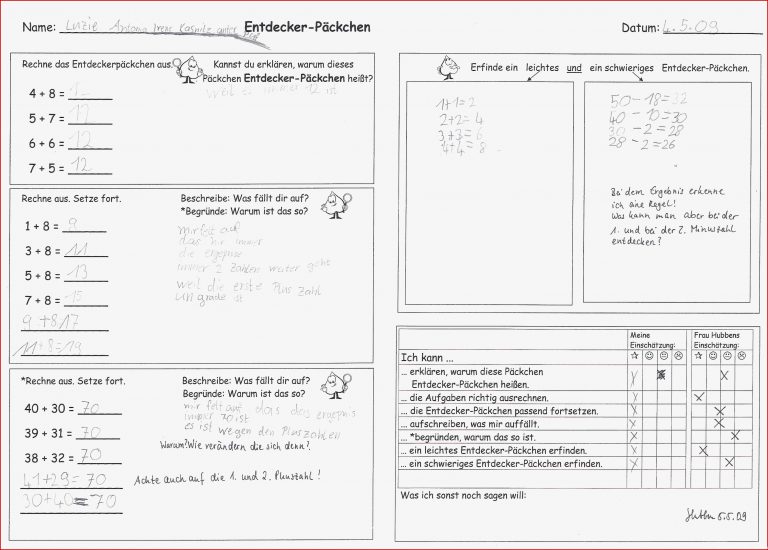 Name: Luzie Entdecker-Päckchen Datum: 4.5.09
Rechne das Entdeckerpäckchen aus.
4 + 8 =
5 + 7 = 12
6 + 6 = 12
7 + 5 = 12
Kannst du erklären, warum dieses
Päckchen Entdecker-Päckchen heißt?
weil es immer 12 ist
Rechne aus. Setze fort.
1 + 8 = 9
3 + 8 = 11
5 + 8 = 13
7 + 8 = 15
9 + 8 17
11+8=19
Beschreibe: Was fällt dir auf?
*Begründe: Warum ist das so?
mir felt auf
das hir immer
die ergepnise
immer 2 Zahlen weiter geht
weil die erste Plus Zahl
ungrade ist
*Rechne aus. Setze fort.
40 + 30 = 70
39 + 31 = 70
38 + 32 = 70
41+29=70
30+40=70
Beschreibe: Was fällt dir auf?
Begründe: Warum ist das so?
mir felt auf das des ergepnis
immer 70 ist
es ist wegen den Pluszahlen
Warum? Wie verändern die sich denn?
Achte auch auf die 1. und 2. Pluszahl!
Erfinde ein leichtes und ein schwieriges Entdecker-Päckchen.
1+1=2
2+2=4
3+3=6
4+4=8
50-18=32
40-10=30
30-2=28
28-2=26
Bei dem Ergebnis erkenne
ich eine Regel!
Was kann man aber bei der
1. und bei der 2. Minuszahl
entdecken?
Meine
Einschätzung:
Frau Hubbens
Einschätzung:
Ich kann ...
... erklären, warum diese Päckchen
Entdecker-Päckchen heißen.
... die Aufgaben richtig ausrechnen.
... die Entdecker-Päckchen passend fortsetzen.
... aufschreiben, was mir auffällt.
... *begründen, warum das so ist.
... ein leichtes Entdecker-Päckchen erfinden.
... ein schwieriges Entdecker-Päckchen erfinden.
Was ich sonst noch sagen will:
5.5.09